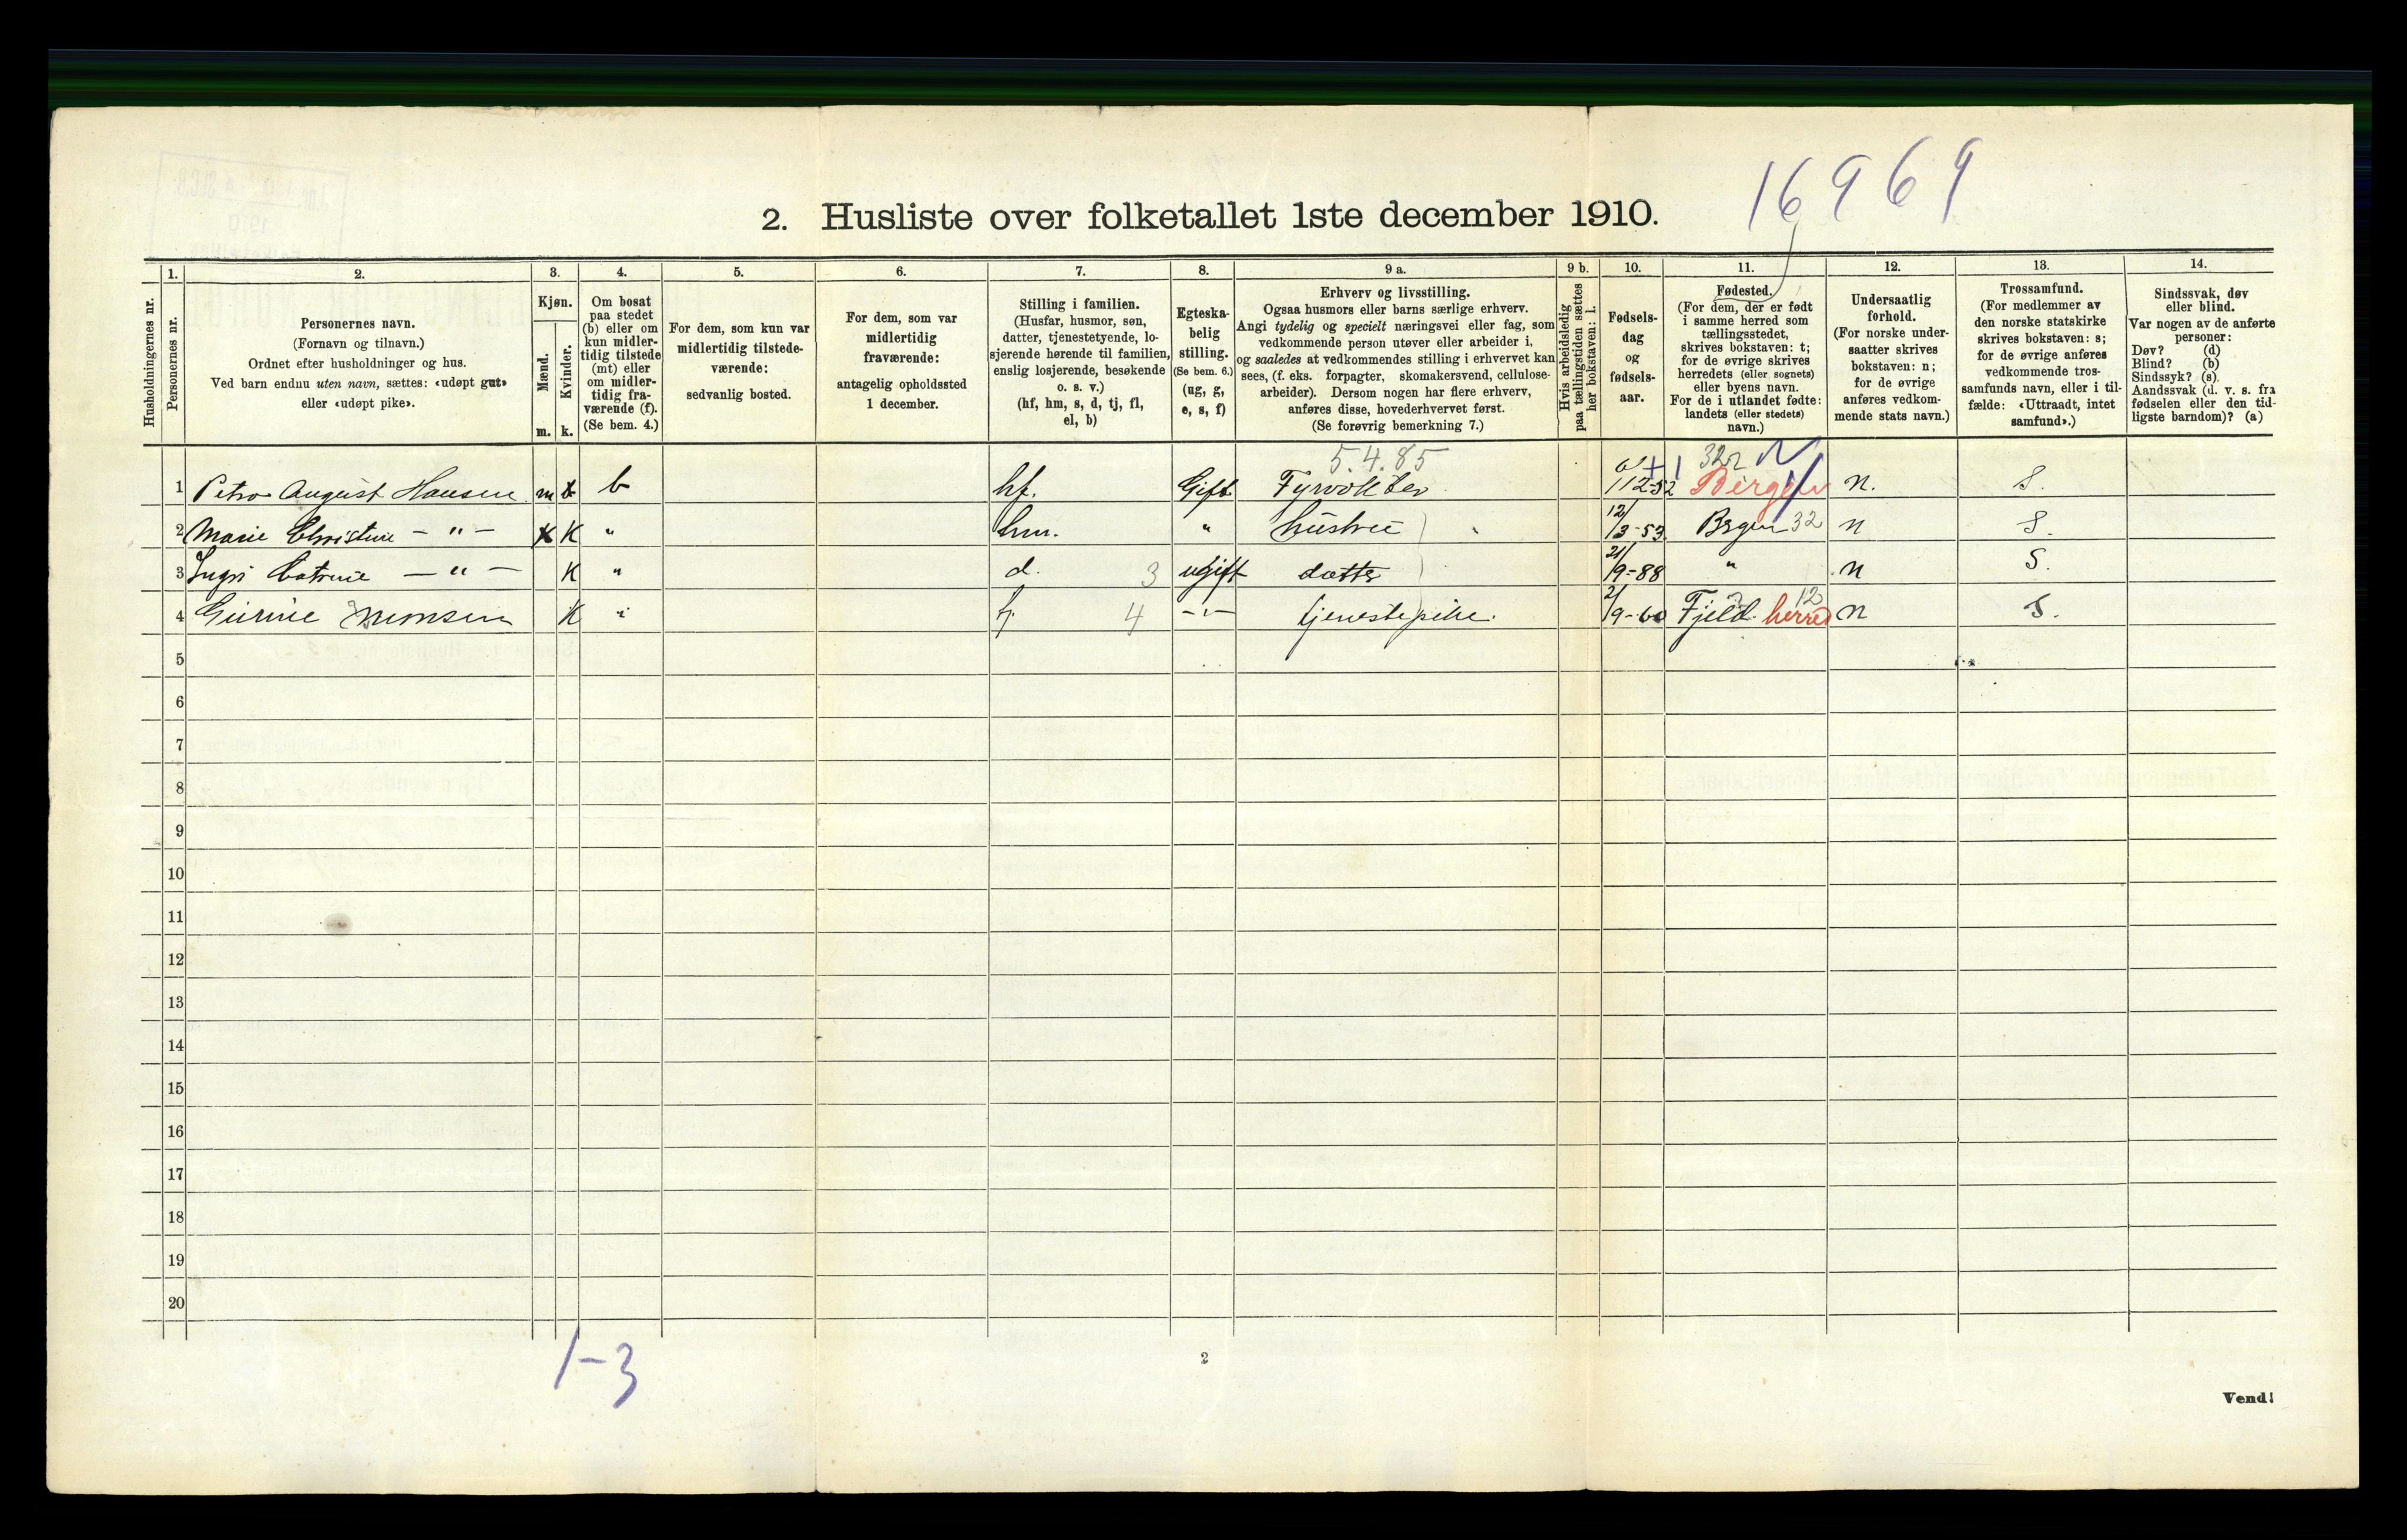 16969
2. Husliste over folketallet 1ste december 1910.
Husholdningernes nr.
1.
Personernes nr.
2.
Personernes navn.
(Fornavn og tilnavn.)
Ordnet efter husholdninger og hus.
Ved barn endnu uten navn, sættes: «udøpt gut»
eller «udøpt pike».
3.
Kjøn.
Mænd.
Kvinder.
m. k.
4.
Om bosat
paa stedet
(b) eller om
kun midler-
tidig tilstede
(mt) eller
om midler-
tidig fra-
værende (f).
(Se bem. 4.)
5.
For dem, som kun var
midlertidig tilstede-
værende:
sedvanlig bosted.
6.
For dem, som var
midlertidig
fraværende:
antagelig opholdssted
1 december.
7.
Stilling i familien.
(Husfar, husmor, søn,
datter, tjenestetyende, lo-
sjerende hørende til familien,
enslig losjerende, besøkende
o. s. v.)
(hf, hm, s, d, tj, fl,
el, b)
8.
Egteska-
belig
stilling.
(Se bem. 6.)
(ug, g,
e, s, f)
9 a.
Erhverv og livsstilling.
Ogsaa husmors eller barns særlige erhverv.
Angi tydelig og specielt næringsvei eller fag, som
vedkommende person utøver eller arbeider i,
og saaledes at vedkommendes stilling i erhvervet kan
sees, (f. eks. forpagter, skomakersvend, cellulose-
arbeider). Dersom nogen har flere erhverv,
anføres disse, hovederhvervet først.
(Se forøvrig bemerkning 7.)
9 b.
Hvis arbeidsledig
paa tællingstiden sættes
her bokstaven: l.
10.
Fødsels-
dag
og
fødsels-
aar.
11.
Fødested.
(For dem, der er født
i samme herred som
tællingsstedet,
skrives bokstaven: t;
for de øvrige skrives
herredets (eller sognets)
eller byens navn.
For de i utlandet fødte:
landets (eller stedets)
navn.)
12.
Undersaatlig
forhold.
(For norske under-
saatter skrives
bokstaven: n;
for de øvrige
anføres vedkom-
mende stats navn.)
13.
Trossamfund.
(For medlemmer av
den norske statskirke
skrives bokstaven: s;
for de øvrige anføres
vedkommende tros-
samfunds navn, eller i til-
fælde: «Uttraadt, intet
samfund».)
14.
Sindssvak, døv
eller blind.
Var nogen av de anførte
personer:
Døv? (d)
Blind? (b)
Sindssyk? (s)
Aandssvak (d. v. s. fra
fødselen eller den tid-
ligste barndom)? (a)
5.4.85
1 August Hansen m b hf. Gift Bergen n. S.
2 Marie Christine — " — K " hm. " hustru 12/3-53 Brgen 32 n S.
3 — " — K " d. 3 ugift datter 21/9-88 " n S.
4 K 4 — " — tjenestepike. 2/9-60 Fjeld herred 12 n S.
5
6
7
8
9
10
11
12
13
14
15
16
17
18
19
20
1-3
2
Vend!